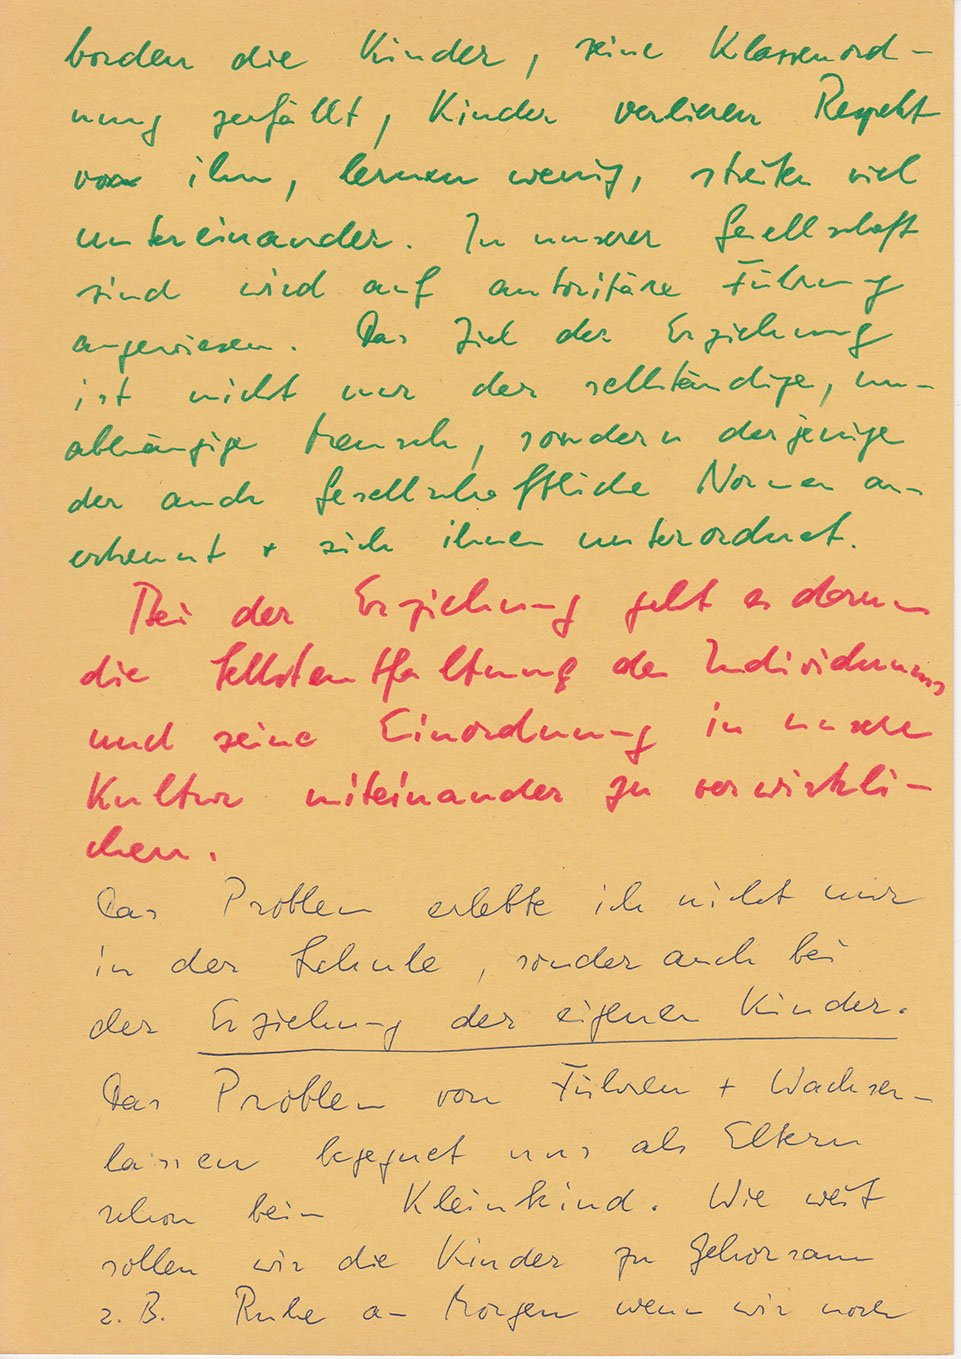 borden die Kinder, seine Klassenord-
nung zerfällt, Kinder verlieren Respekt
vor ihm, lernen wenig, streiten viel
untereinander. In unserer Gesellschaft
sind wird auf autoritäre Führung
angewiesen. Das Ziel der Erziehung
ist nicht nur der selbständige, un-
abhängige Mensch, sondern derjenige
der auch gesellschaftliche Normen an-
erkennt + sich ihnen unterordnet.
Bei der Erziehung geht es darum
die Selbstentfaltung des Individuums
und seine Einordnung in unsere
Kultur miteinander zu verwirkli-
chen.
Das Problem erlebte ich nicht nur
in der Schule, sonder auch bei
der Erziehung der eigenen Kinder.
Das Problem von Führen + Wachsen-
lassen begegnet uns als Eltern
schon beim Kleinkind. Wie weit
sollen wir die Kinder zu Gehorsam
z. B. Ruhe am Morgen wenn wir noch